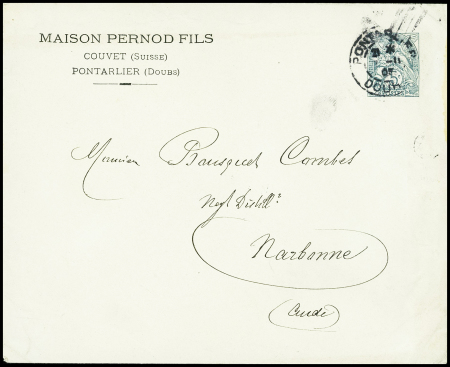 MAISON PERNOD FILS
COUVET (SUISSE)
PONTARLIER (DOUBS)
PONTARLIER
05
DOUBS
Monsieur Bousquet Combes
Negt Distillr
Narbonne
(Aude)